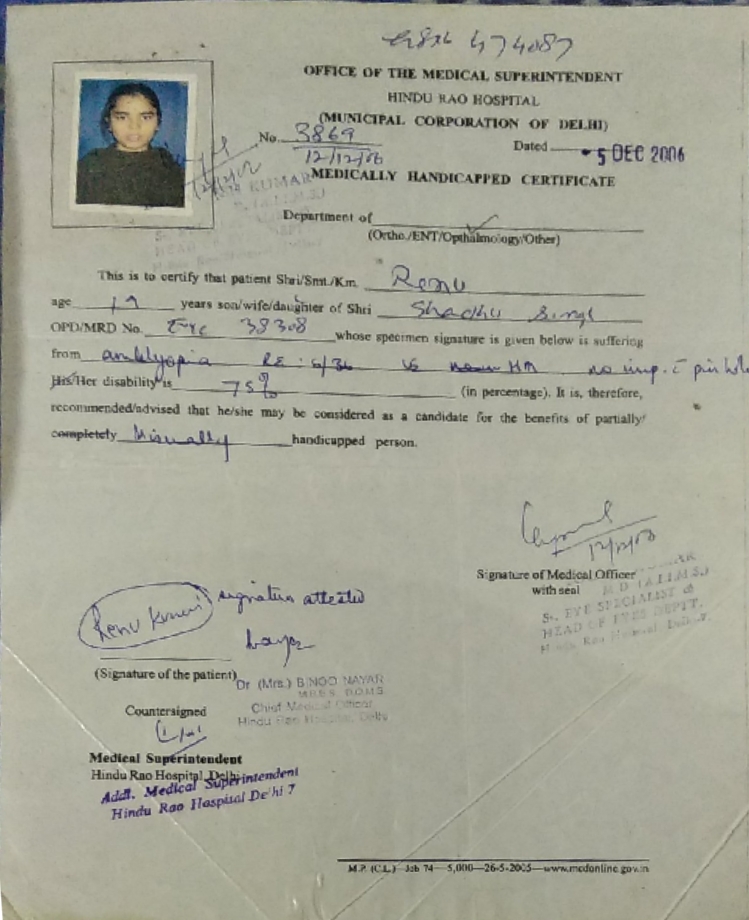 474087
OFFICE OF THE MEDICAL SUPERINTENDENT
HINDU RAO HOSPITAL
(MUNICIPAL CORPORATION OF DELHI)
No. 3869
12/12/06
Dated - 5 DEC 2006
MEDICALLY HANDICAPPED CERTIFICATE
KUMAR
Department of
(Ortho./ENT/Opthalmology/Other)
This is to certify that patient Shri/Smt./Km. Renu
age 19 years son/wife/daughter of Shri Shadhu Singh
OPD/MRD No. Eye 38308 whose specimen signature is given below is suffering
from amblyopia RE: 6/36 HM no imp. c pin hole
His/Her disability is 75% (in percentage). It is, therefore,
recommended/advised that he/she may be considered as a candidate for the benefits of partially/
completely Visually handicapped person.
12/12/06
Signature of Medical Officer
with seal
M.D. (A.I.I.M.S.)
Sr. EYE SPECIALIST &
HEAD OF EYES DEPTT.
Hindu Rao Hospital, Delhi-7.
Renu Kumari signature attested
(Signature of the patient)
Dr (Mrs.) BINOO NAYAR
M.B.B.S. D.O.M.S.
Chief Medical Officer
Hindu Rao Hospital, Delhi
Countersigned
Medical Superintendent
Hindu Rao Hospital, Delhi
Addl. Medical Superintendent
Hindu Rao Hospital Delhi 7
M.P. (C.L.)—Job 74—5,000—26-5-2005—www.mcdonline.gov.in